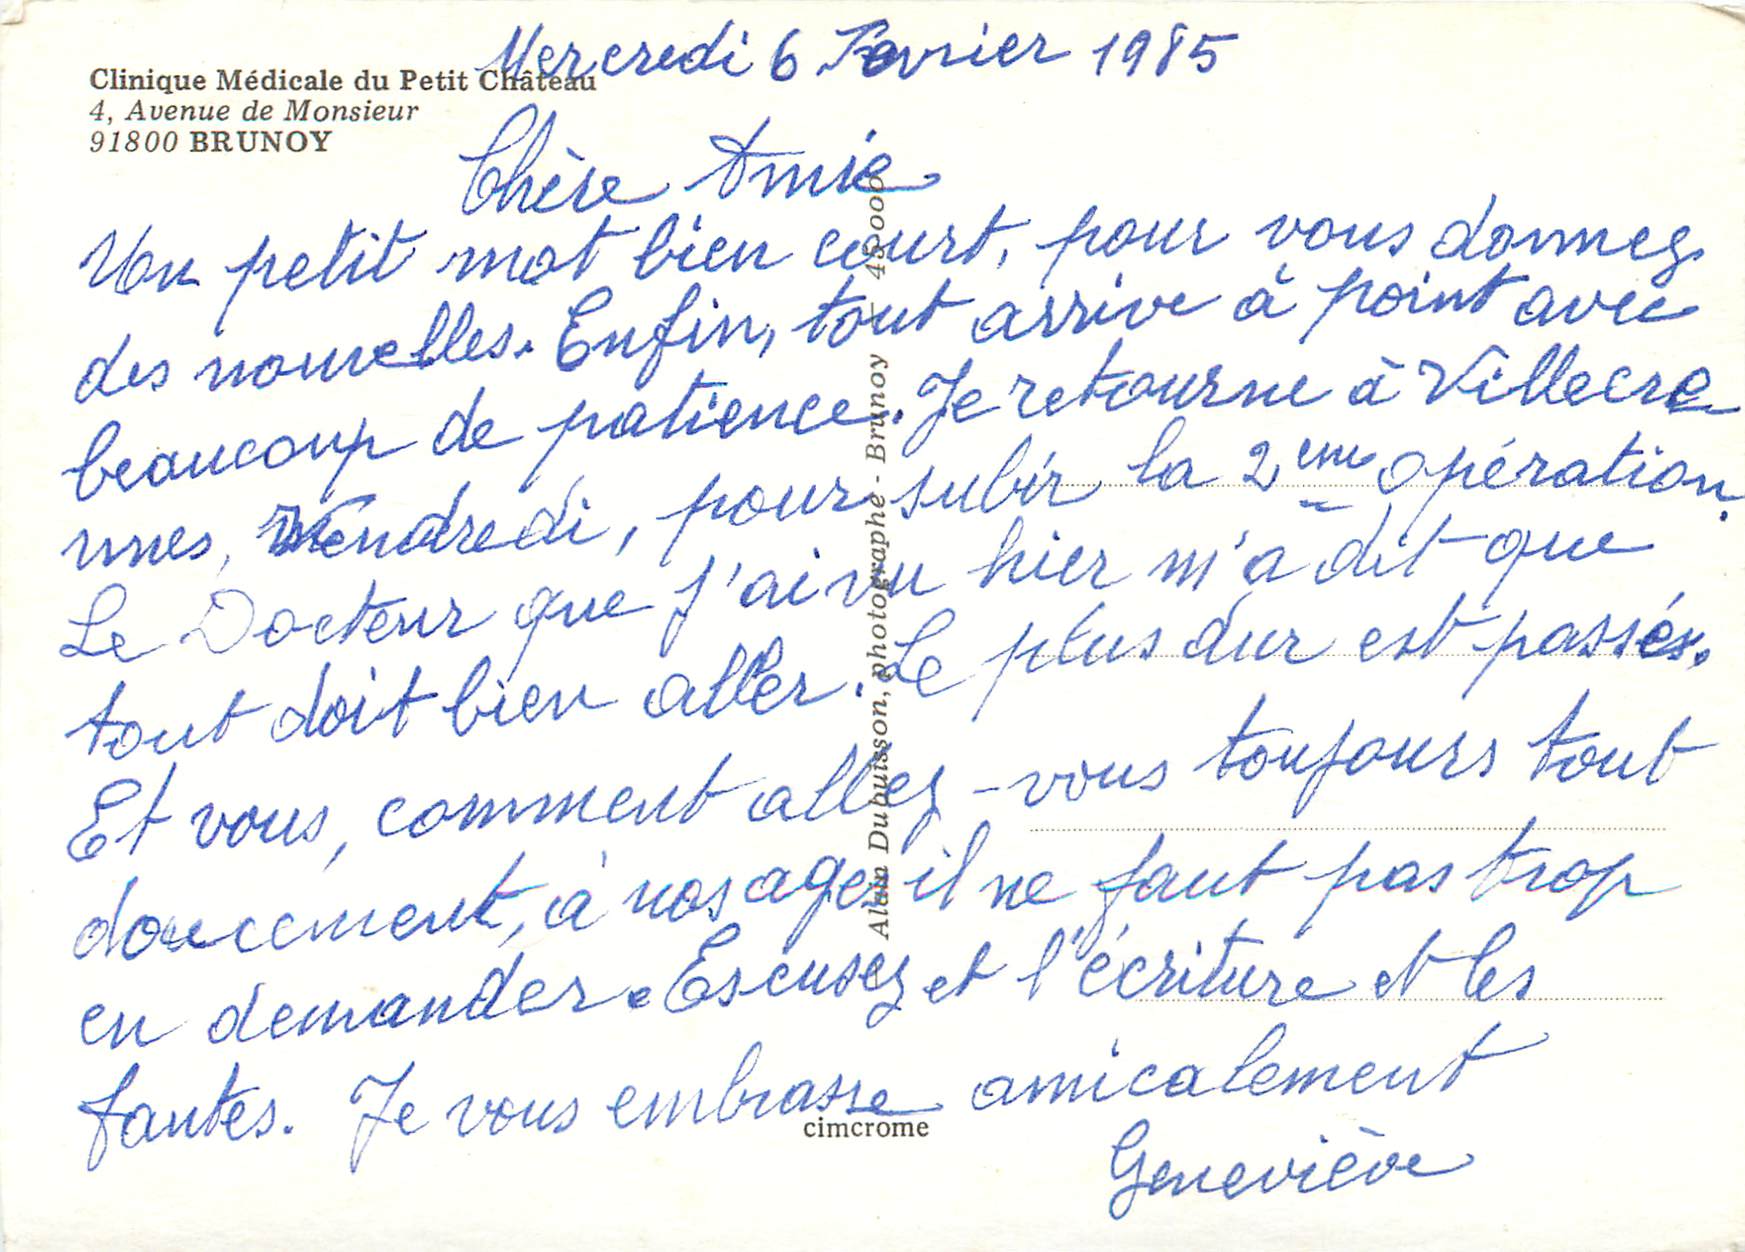 Mercredi 6 Fevrier 1985
Clinique Médicale du Petit Château
4, Avenue de Monsieur
91800 BRUNOY
Chère Amie
Un petit mot bien court, pour vous donnez
des nouvelles. Enfin, tout arrive à point avec
beaucoup de patience. Je retourne à Villecre
nnes, Vendredi, pour subir la 2eme opération.
Le Docteur que j'ai vu hier m'a dit que
tout doit bien aller. Le plus dur est passés.
Et vous, comment allez-vous toujours tout
doucement, à nos ages il ne faut pas trop
en demander. Escusez et l'écriture et les
fautes. Je vous embrasse amicalement
Geneviève
Alain Dubuisson, photographe - Brunoy - 45 000
cimcrome